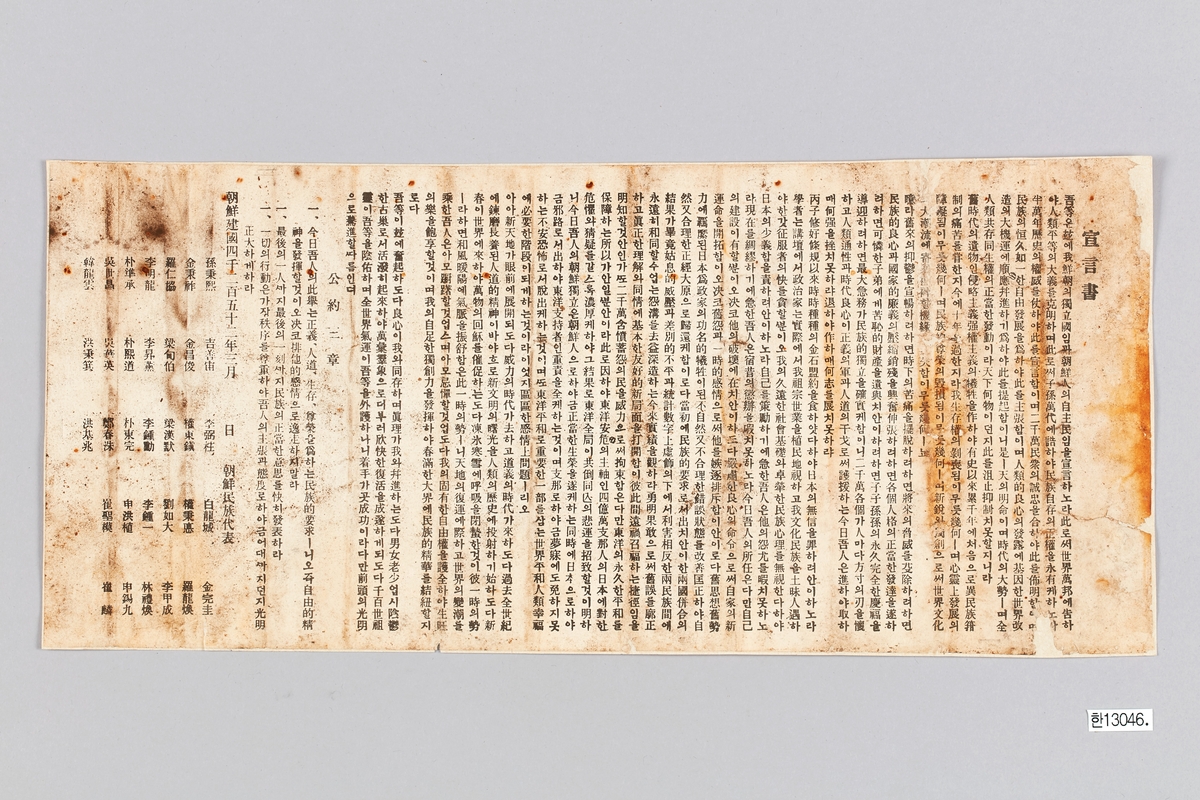 宣言書
吾等은玆에我朝鮮의獨立國임과朝鮮人의自主民임을宣言하노라此로써世界萬邦에告하
야人類平等의大義를克明하며此로써子孫萬代에誥하야民族自存의正權을永有케하노라
半萬年歷史의權威를仗하야此를宣言함이며二千萬民衆의誠忠을合하야此를佈明함이며
民族의恒久如一한自由發展을爲하야此를主張함이며人類的良心의發露에基因한世界改
造의大機運에順應幷進하기爲하야此를提起함이니是ㅣ天의明命이며時代의大勢ㅣ며全
人類共存同生權의正當한發動이라天下何物이던지此를沮止抑制치못할지니라
舊時代의遺物인侵略主義强權主義의犧牲을作하야有史以來累千年에처음으로異民族箝
制의痛苦를嘗한지今에十年을過한지라我生存權의剝喪됨이무릇幾何ㅣ며心靈上發展의
障礙됨이무릇幾何ㅣ며民族的尊榮의毁損됨이무릇幾何ㅣ며新銳와獨創으로써世界文化
大潮流에寄 機緣을 失함이무릇幾何ㅣ뇨
噫라舊來의抑鬱을宣暢하려하면時下의苦痛을擺脫하려하면將來의脅威를芟除하려하면
民族的良心과國家的廉義의壓縮銷殘을興奮伸張하려하면各個人格의正當한發達을遂하
려하면可憐한子弟에게苦恥的財産을遺與치안이하려하면子子孫孫의永久完全한慶福을
導迎하려하면最大急務가民族的獨立을確實케함이니二千萬各個가人마다方寸의刃을懷
하고人類通性과時代良心이正義의軍과人道의干戈로써護援하는今日吾人은進하야取하
매何强을挫치못하랴退하야作하매何志를展치못하랴
丙子修好條規以來時時種種의金石盟約을食하얏다하야日本의無信을罪하려안이하노라
學者는講壇에서政治家는實際에서我祖宗世業을植民地視하고我文化民族을土昧人遇하
야한갓征服者의快를貪할뿐이오我의久遠한社會基礎와卓犖한民族心理를無視한다하야
日本의少義함을責하려안이하노라自己를策勵하기에急한吾人은他의怨尤를暇치못하노
라現在를綢繆하기에急한吾人은宿昔의懲辦을暇치못하노라今日吾人의所任은다만自己
의建設이有할뿐이오決코他의破壞에在치안이하도다嚴肅한良心의命令으로써自家의新
運命을開拓함이오決코舊怨과一時的感情으로써他를嫉逐排斥함이안이로다舊思想舊勢
力에羈縻된日本爲政家의功名的犧牲이된不自然又不合理한錯誤狀態를改善匡正하야自
然又合理한正經大原으로歸還케함이로다當初에民族的要求로서出치안이한兩國倂合의
結果가畢竟姑息的威壓과差別的不平과統計數字上虛飾의下에서利害相反한兩民族間에
永遠히和同할수업는怨溝를去益深造하는今來實績을觀하라勇明果敢으로써舊誤를廓正
하고眞正한理解와同情에基本한友好的新局面을打開함이彼此間遠禍召福하는捷徑임을
明知할것안인가또二千萬含憤蓄怨의民을威力으로써拘束함은다만東洋의永久한平和를
保障하는所以가안일뿐안이라此로因하야東洋安危의主軸인四億萬支那人의日本에對한
危懼와猜疑를갈스록濃厚케하야그結果로東洋全局이共倒同亡의悲運을招致할것이明하
니今日吾人의朝鮮獨立은朝鮮人으로하야금正當한生榮을遂케하는同時에日本으로하야
금邪路로서出하야東洋支持者인重責을全케하는것이며支那로하야금夢寐에도免하지못
하는不安恐怖로서脫出케하는것이며또東洋平和로重要한一部를삼는世界平和人類幸福
에必要한階段이되게하는것이라이엇지區區한感情上問題ㅣ리오
아아新天地가眼前에展開되도다威力의時代가去하고道義의時代가來하도다過去全世紀
에鍊磨長養된人道的精神이바야흐로新文明의曙光을人類의歷史에投射하기始하도다新
春이世界에來하야萬物의回穌를催促하는도다凍氷寒雪에呼吸을閉蟄한것이彼一時의勢
ㅣ라하면和風暖陽에氣脈을振舒함은此一時의勢ㅣ니天地의復運에際하고世界의變潮를
乘한吾人은아모躊躇할것업스며아모忌憚할것업도다我의固有한自由權을護全하야生旺
의樂을飽享할것이며我의自足한獨創力을發揮하야春滿한大界에民族的精華를結紐할지
로다
吾等이玆에奮起하도다良心이我와同存하며眞理가我와幷進하는도다男女老少업시陰鬱
한古巢로서活潑히起來하야萬彙群象으로더부러欣快한復活을成遂하게되도다千百世祖
靈이吾等을陰佑하며全世界氣運이吾等을外護하나니着手가곳成功이라다만前頭의光明
으로驀進할따름인뎌
公約三章
一、今日吾人의此擧는正義、人道、生存、尊榮을爲하는民族的要求ㅣ니오즉自由的精
神을發揮할것이오決코排他的感情으로逸走하지말라
一、最後의一人까지最後의一刻까지民族의正當한意思를快히發表하라
一、一切의行動은가장秩序를尊重하야吾人의主張과態度로하야금어대까지던지光明
正大하게하라
朝鮮建國四千二百五十二年三月 日 朝鮮民族代表
孫秉熙 吉善宙 李弼柱 白龍城 金完圭
金秉祚 金昌俊 權東鎭 權秉悳 羅龍煥
羅仁協 梁甸伯 梁漢默 劉如大 李甲成
李明龍 李昇薰 李鍾勳 李鍾一 林禮煥
朴準承 朴熙道 朴東完 申洪植 申錫九
吳世昌 吳華英 鄭春洙 崔聖模 崔 麟
韓龍雲 洪秉箕 洪基兆
한13046.